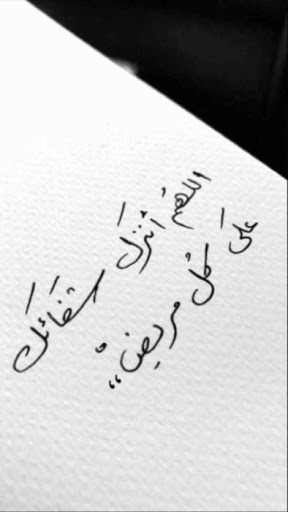 اللهُم أنزِل شِفَائك
على كُل مريض،،